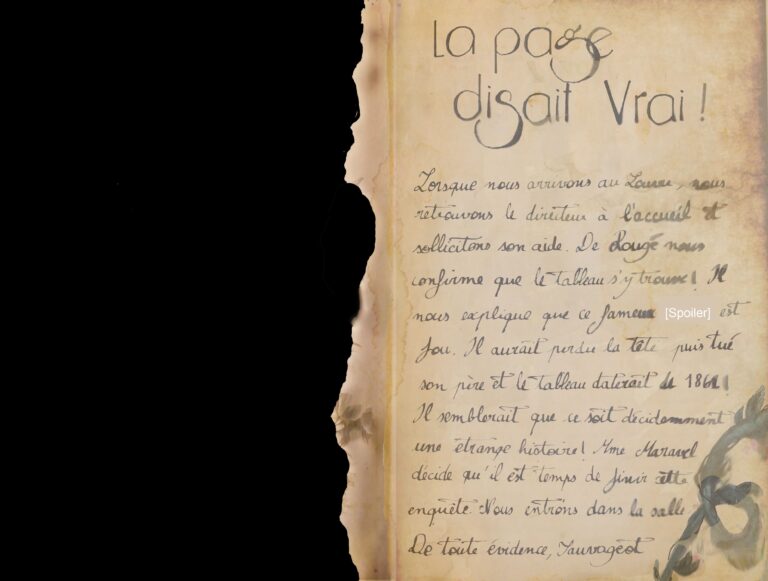 La page
disait Vrai !
Lorsque nous arrivons au Louvre, nous
retrouvons le directeur à l'accueil et
sollicitons son aide. De Rougé nous
confirme que le tableau s'y trouve ! Il
nous explique que ce fameux [Spoiler] est
fou. Il aurait perdu la tête puis tué
son père et le tableau daterait de !
Il semblerait que ce soit décidemment
une étrange histoire ! Mme Maravel
décide qu'il est temps de finir cette
enquête. Nous entrons dans la salle.
De toute évidence, Sauvageot